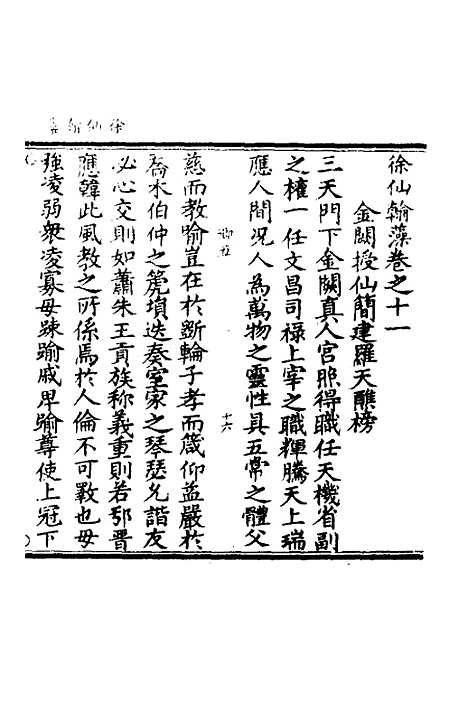 徐仙翰藻卷之十一
金闕授仙簡建羅天醮榜
三天門下金闕真人宮照得職任天機省副
之權一任文昌司祿上宰之職輝騰天上瑞
應人間况人為萬物之靈性具五常之體父
十六
慈而教喻豈在於斷輪子孝而箴仰益嚴於
喬木伯仲之箎塤迭奏室家之琴瑟允諧友
必心交則如蕭朱王貢族称義重則若鄂晋
應韓此風教之所係焉於人倫不可斁也毋
強凌弱衆凌寡毋踈踰戚卑踰尊使上冠下
徐仙